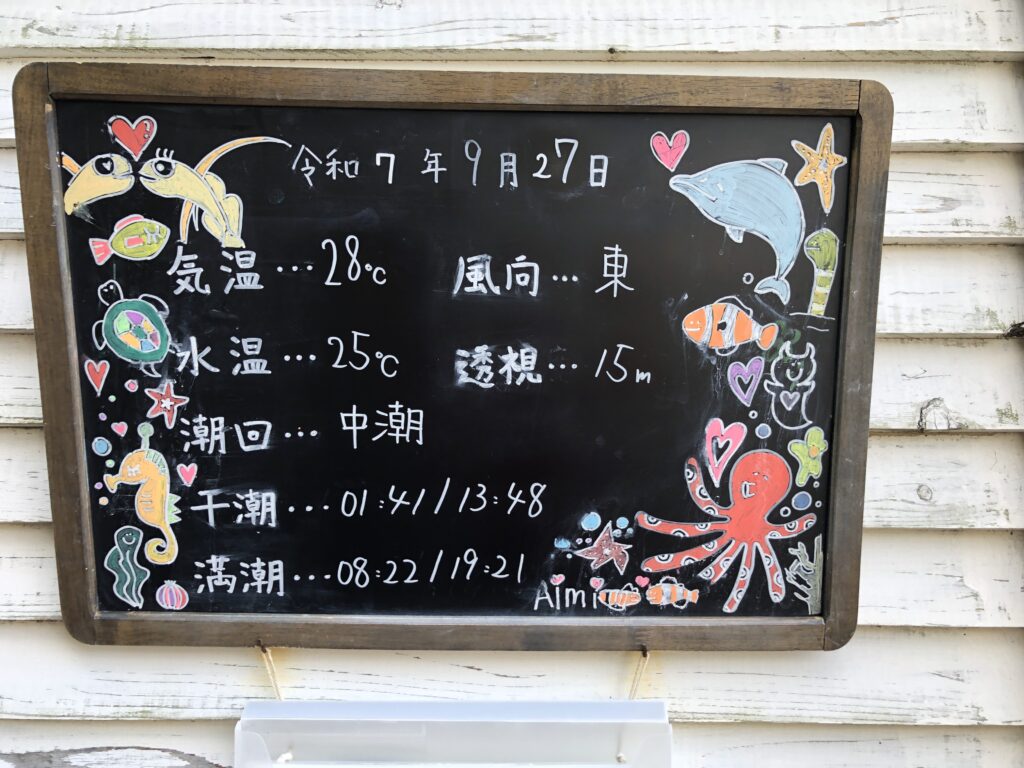 令和7年9月27日
気温…28℃ 風向…東
水温…25℃ 透視…15m
潮回…中潮
干潮…01:41/13:48
満潮…08:22/19:21
Aimi